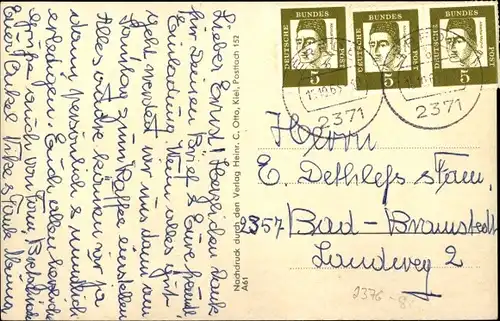 Lieber Ernst! Herzlichen Dank
für Deinen Brief & Eure freundl.
Einladung. Wenn alles gut
geht werden wir uns dann am
Sonntag zum Kaffee einstellen
Alles andre können wir ja
dann persönlich & mündlich
erledigen. Euch allen herzliche
Grüße auch von
Euer Onkel & Tante
Nachdruck durch den Verlag Heinr. C. Otto, Kiel, Postfach 152
A61
DEUTSCHE BUNDES POST 5
DEUTSCHE BUNDES POST 5
DEUTSCHE BUNDES POST 5
2371
2371
Herrn
E. Dethlefs
2357 Bad-Bramstedt
Landweg 2